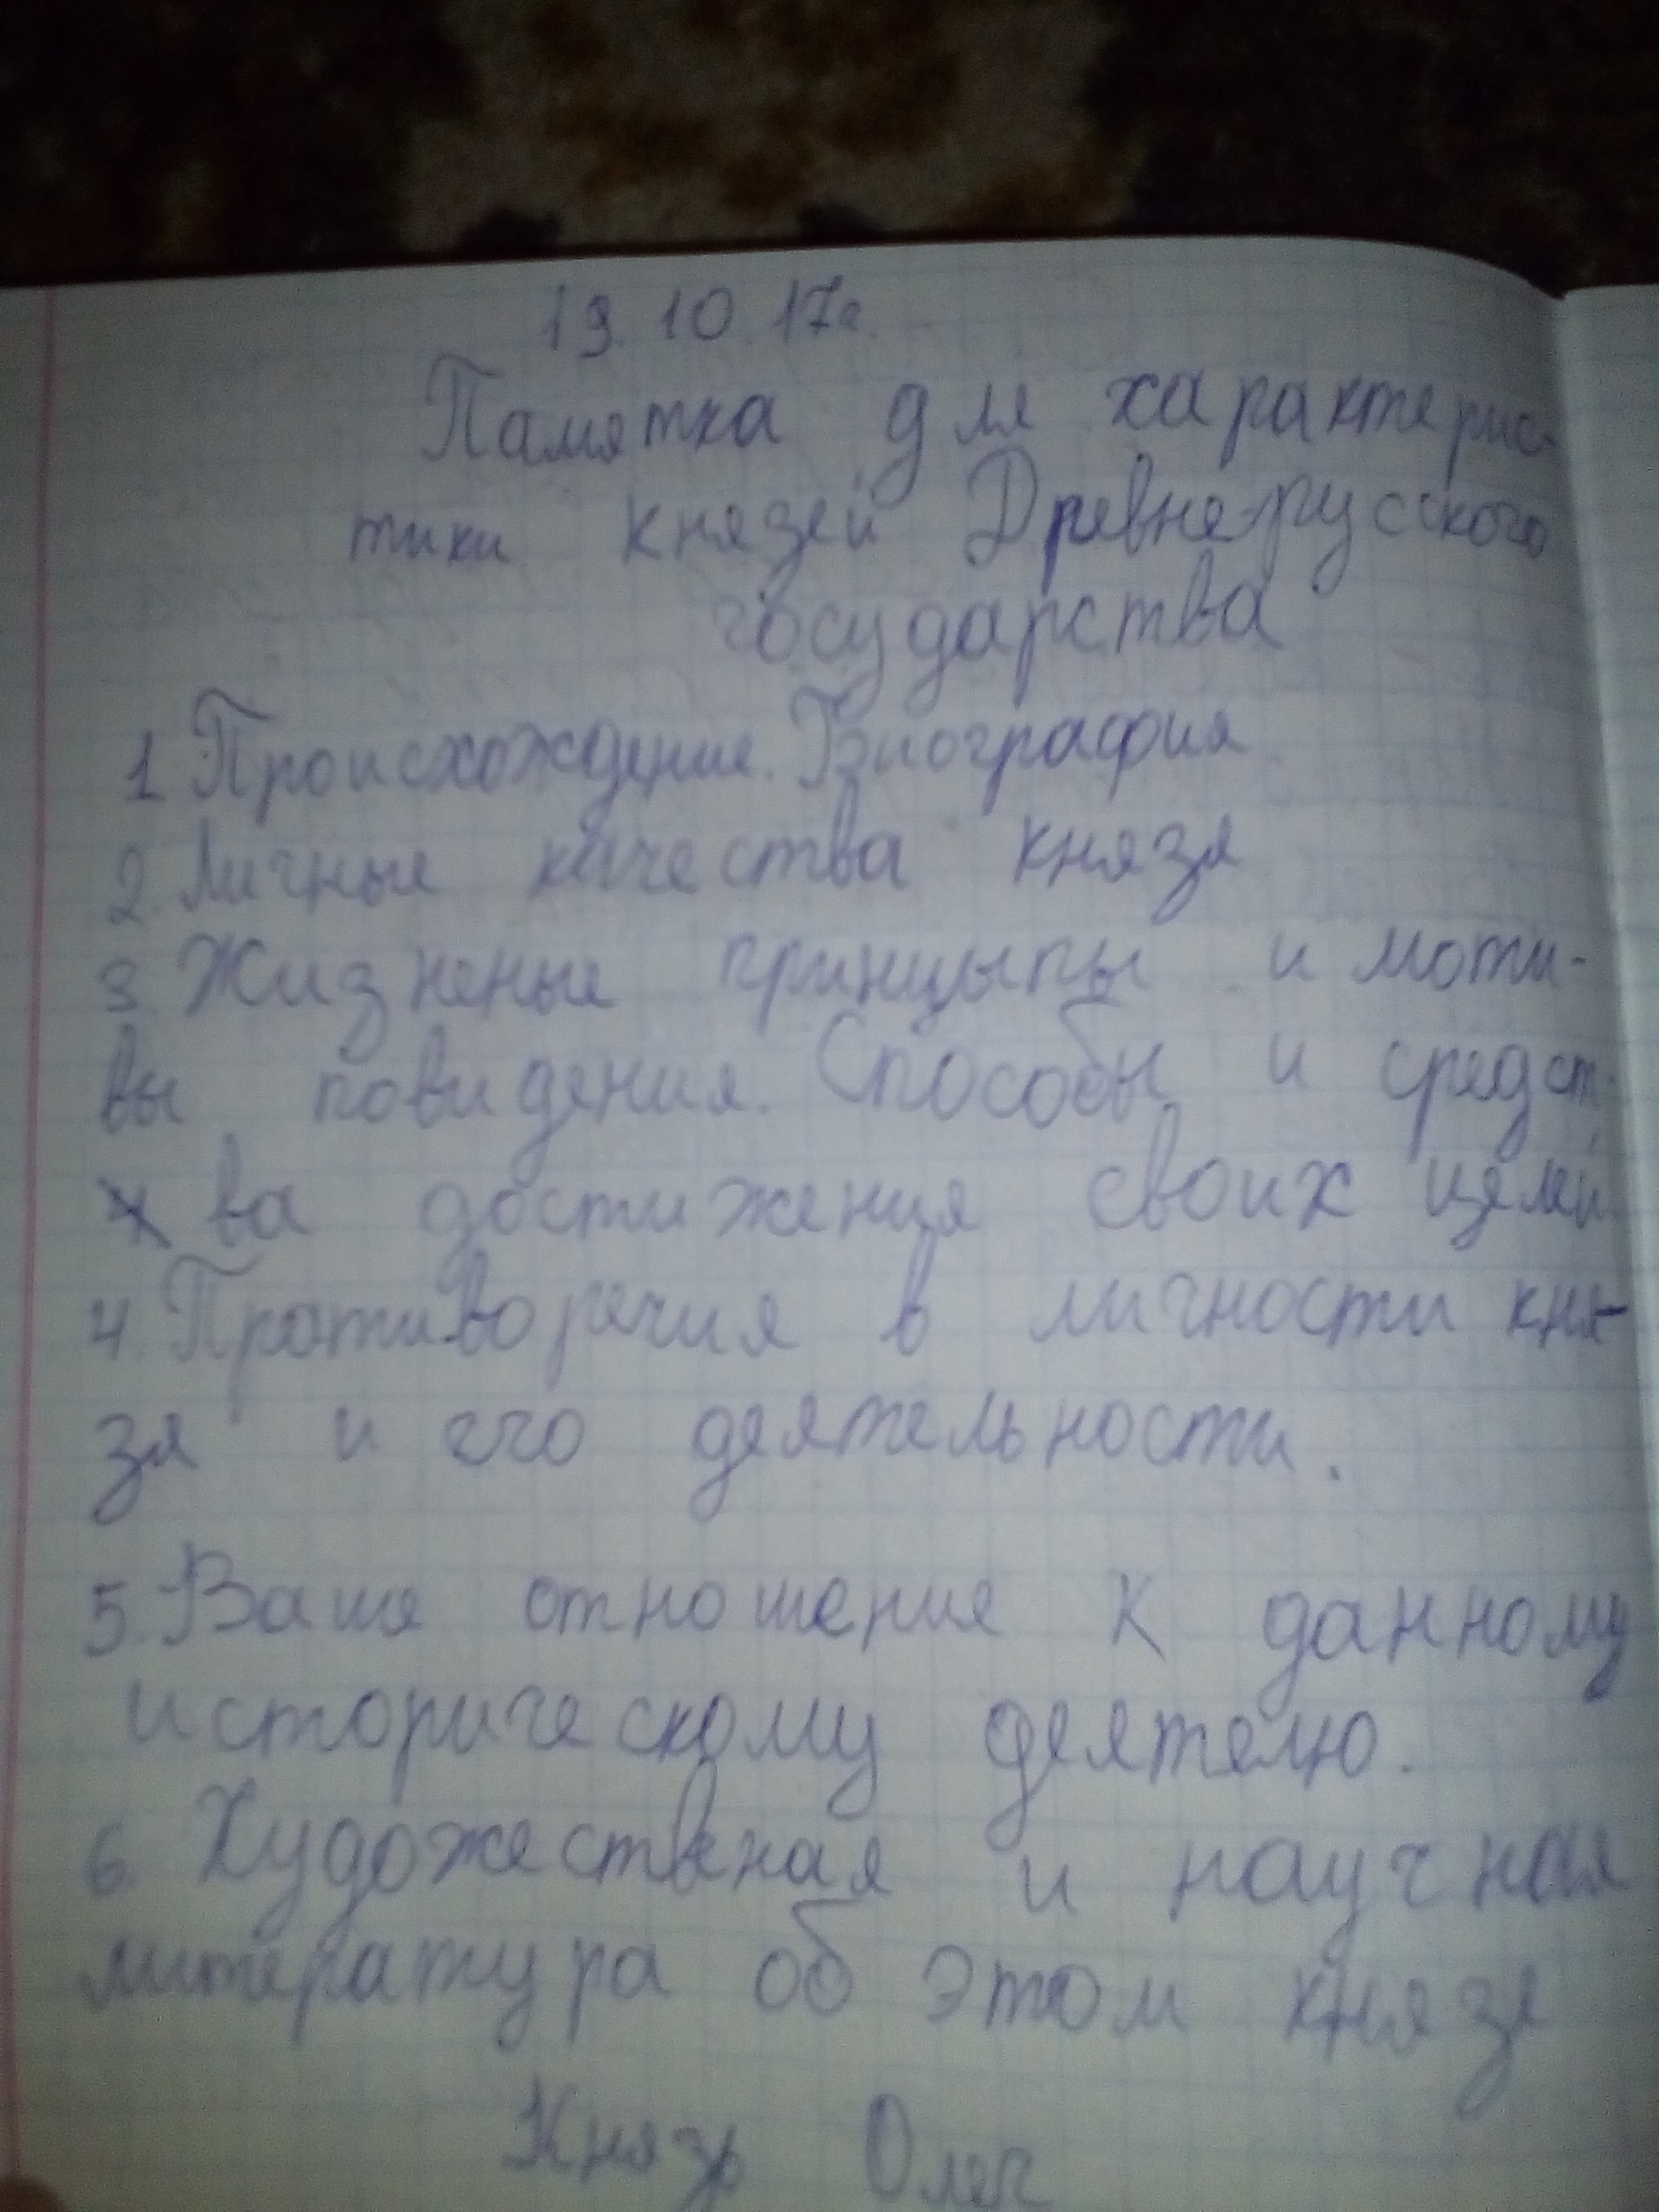 19.10.17г.
Памятка для характерис-
тики князей Древнерусского
государства
1 Происхождение. Биография
2. Личные качества князя
3 Жизненые принцыпы и моти-
вы повидения. Способы и средст-
ва достижения своих целей
4. Противоречия в личности кня-
зя и его деятельности.
5. Ваше отношение к данному
историческому деятелю.
6. Художественая и научная
литература об этом князе
Князь Олег